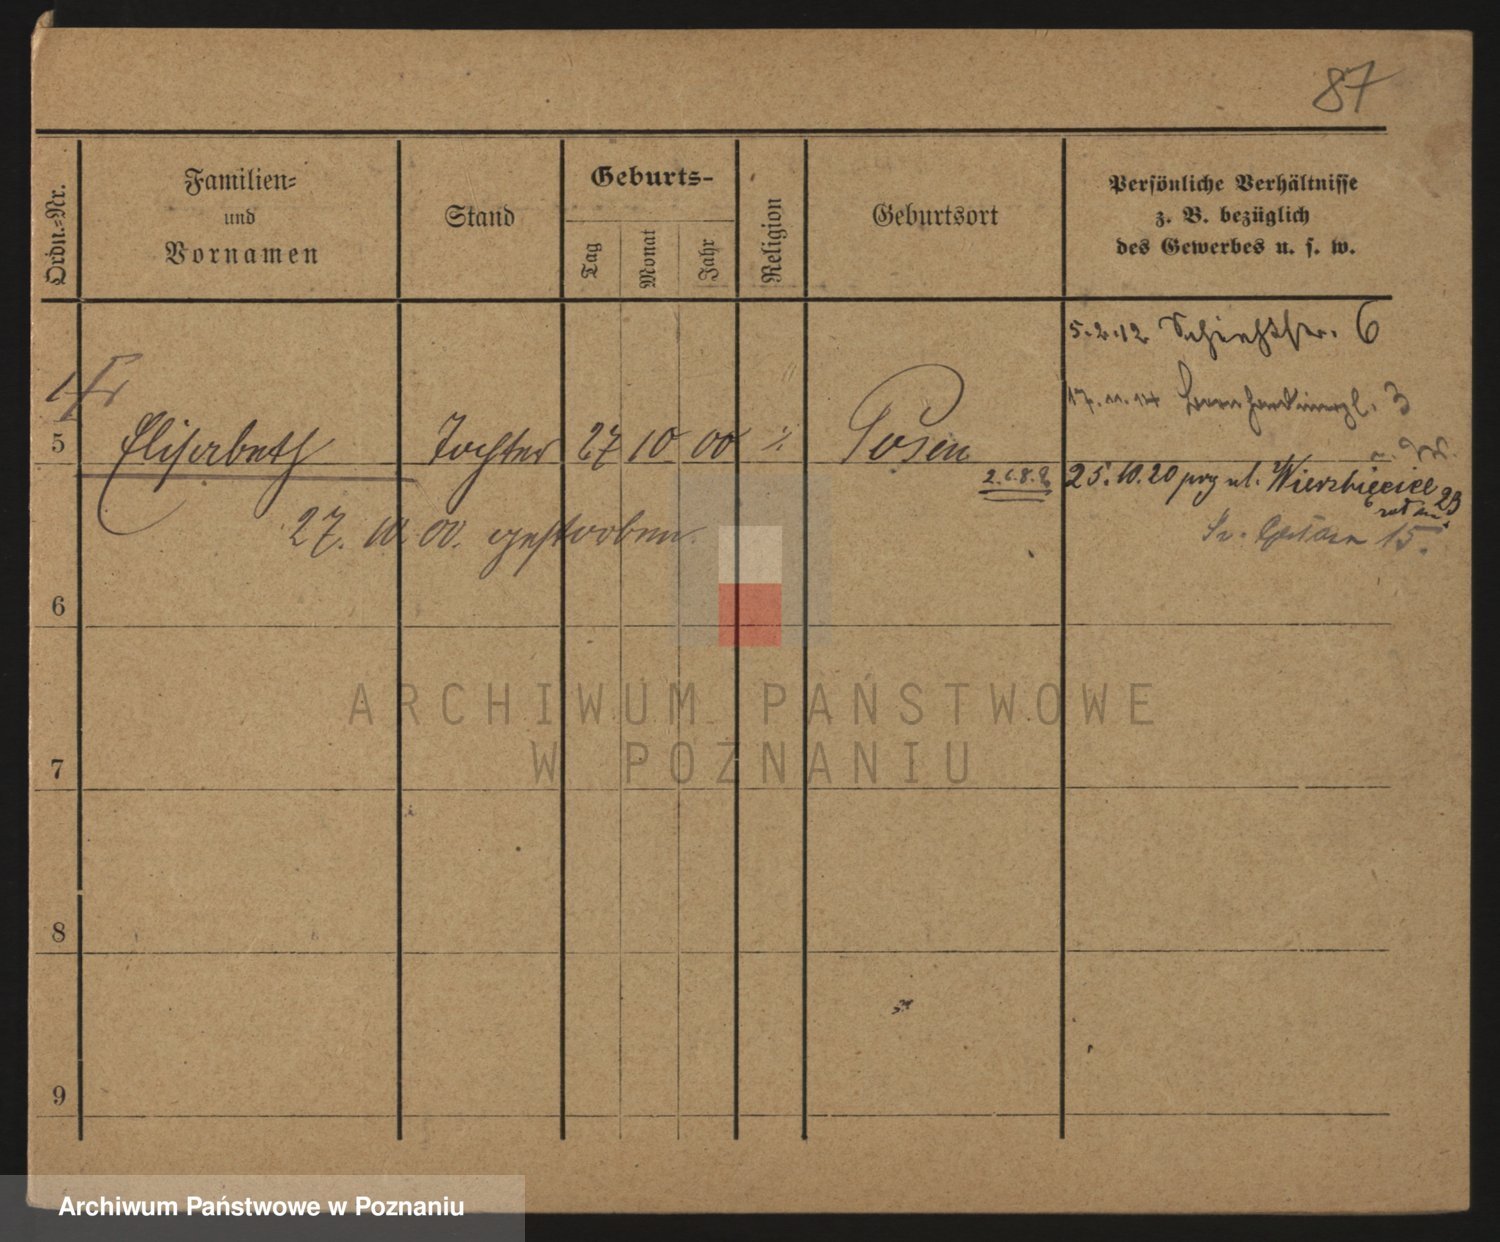 87
Ordn.-Nr.
Familien-
und
Vornamen
Stand
Geburts-
Tag
Monat
Jahr
Religion
Geburtsort
Persönliche Verhältnisse
z. B. bezüglich
des Gewerbes u. s. w.
5.2.12 Schießstr. 6
17.11.14 Bernhardinerpl. 3
5 Elisabeth Tochter 27 10 00 Posen
25.10.20 prz ul. Wierzbięcice 23
27. 10. 00. gestorben.
15.
6
7
8
9
ARCHIWUM PAŃSTWOWE
W POZNANIU
Archiwum Państwowe w Poznaniu